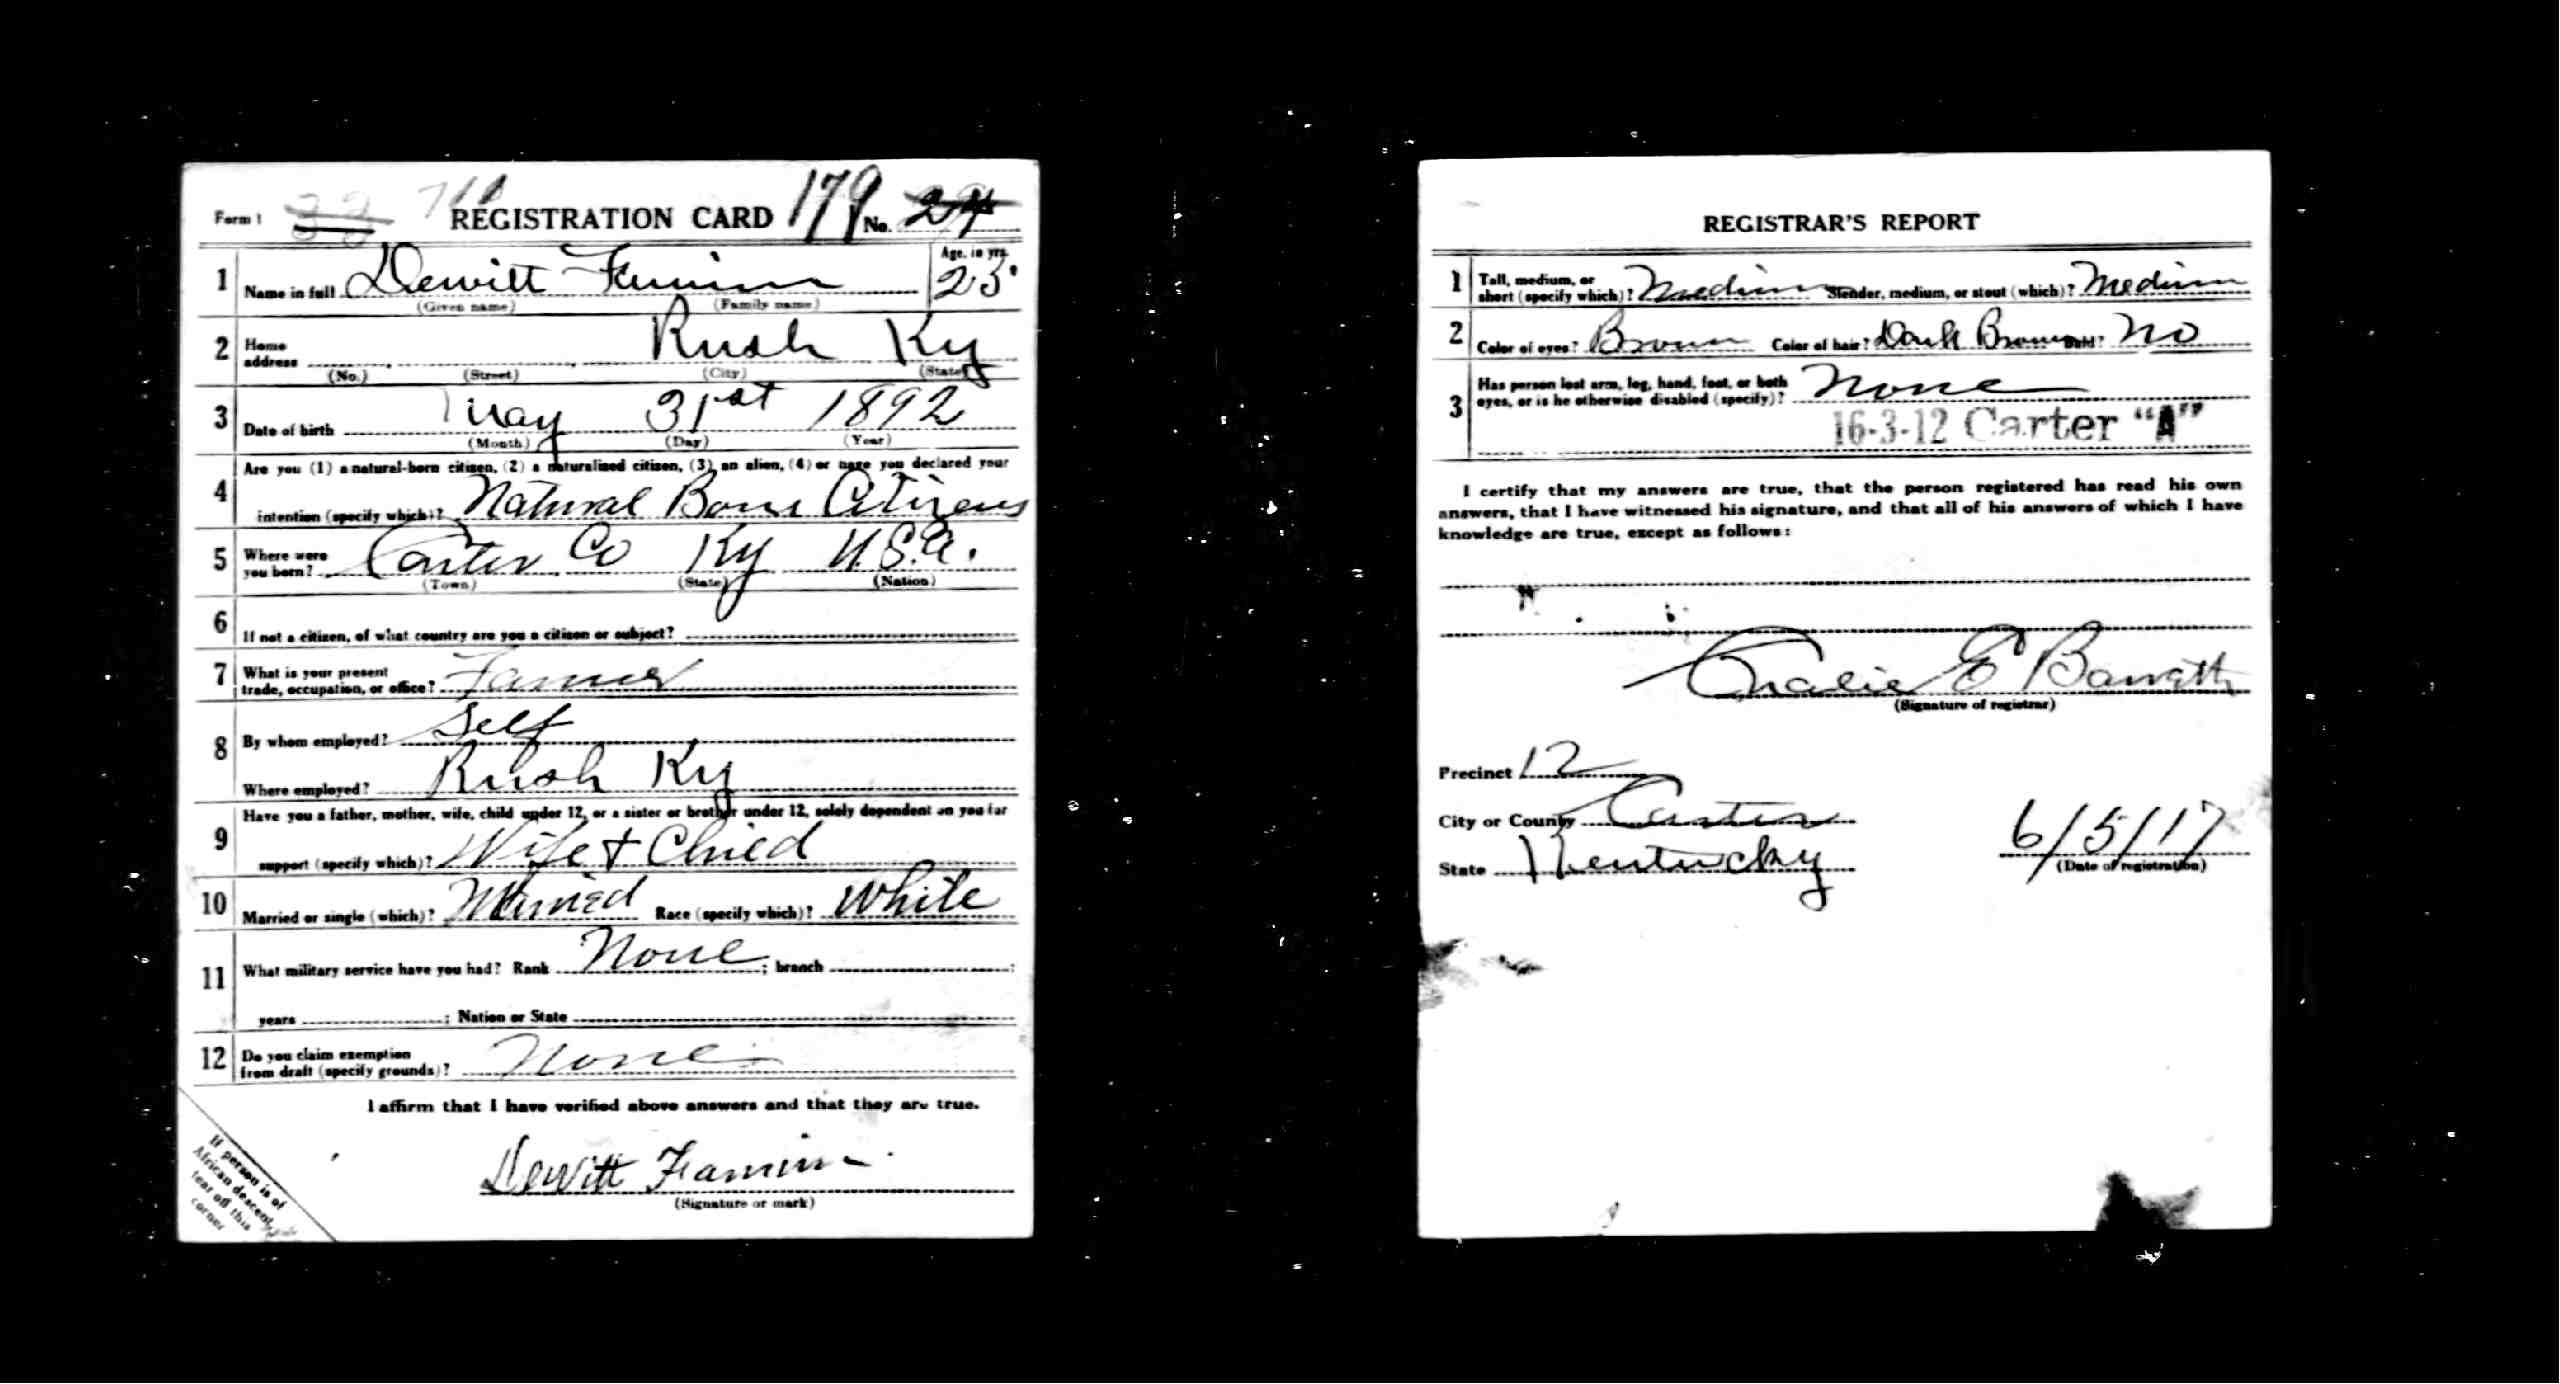 Form 1 REGISTRATION CARD 179 No. 24
1 Name in full Dewitt Age, in yrs. 25
(Given name) (Family name)
2 Home address Rush Ky
(No.) (Street) (City) (State)
3 Date of birth May 31st 1892
(Month) (Day) (Year)
4 Are you (1) a natural-born citizen, (2) a naturalized citizen, (3) an alien, (4) or have you declared your
intention (specify which)? Natural Born Citizens
5 Where were you born? Carter Co Ky U.S.A.
(Town) (State) (Nation)
6 If not a citizen, of what country are you a citizen or subject?
7 What is your present
trade, occupation, or office? Farmer
8 By whom employed? Self
Where employed? Rush Ky
9 Have you a father, mother, wife, child under 12, or a sister or brother under 12, solely dependent on you for
support (specify which)? Wife + Child
10 Married or single (which)? Married Race (specify which)? White
11 What military service have you had? Rank None ; branch ;
years ; Nation or State
12 Do you claim exemption
from draft (specify grounds)? None
I affirm that I have verified above answers and that they are true.
Dewitt
(Signature or mark)
If person is of
African descent,
tear off this
corner
REGISTRAR'S REPORT
1 Tall, medium, or
short (specify which)? Medium Slender, medium, or stout (which)? Medium
2 Color of eyes? Brown Color of hair? Dark Brown Bald? No
3 Has person lost arm, leg, hand, foot, or both
eyes, or is he otherwise disabled (specify)? None
16-3-12 Carter "A"
I certify that my answers are true, that the person registered has read his own
answers, that I have witnessed his signature, and that all of his answers of which I have
knowledge are true, except as follows:
E
(Signature of registrar)
Precinct 12
City or County Carter
State Kentucky 6/5/17
(Date of registration)